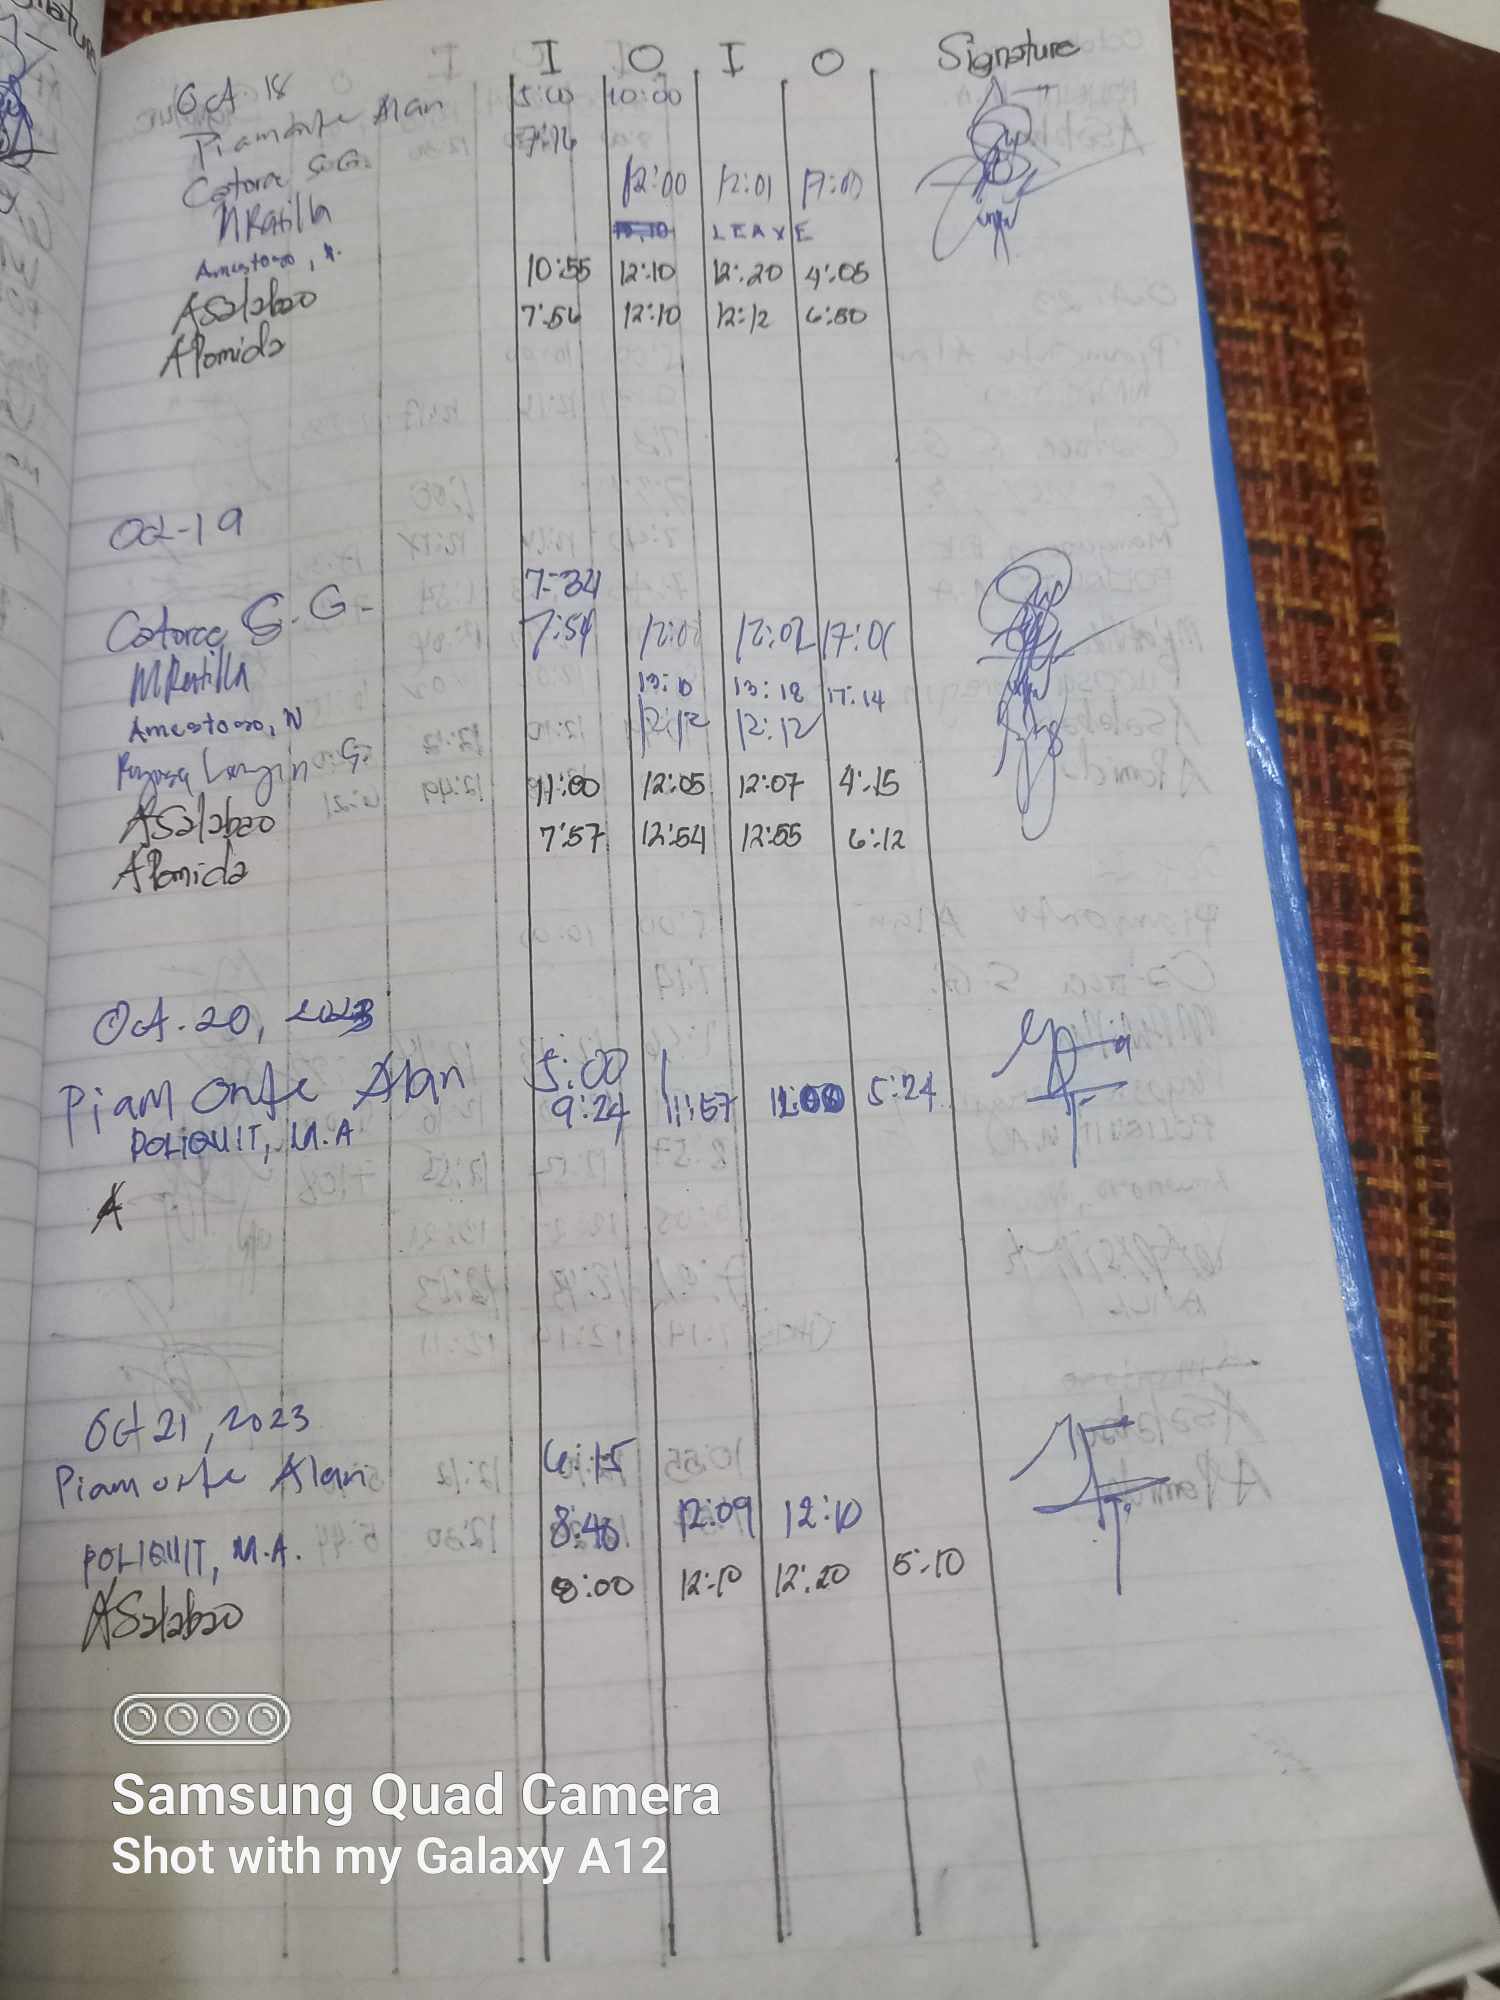 I O I O Signature
Oct 18
Piamonte Alan 5:00 10:00
Catorce S.G. 7:16
MRatilla 12:00 12:01 17:01
Amestoso, N. LEAVE
ASalabao 10:55 12:10 12:20 4:05
APomida 7:56 12:10 12:12 6:30
Oct-19
Catorce S.G. 7:34
MRatilla 7:54 12:01 12:02 17:01
Amestoso, N 13:10 13:18 17:14
12:12 12:12
ASalabao 11:00 12:05 12:07 4:15
APomida 7:57 12:54 12:55 6:12
Oct. 20, 2023
Piamonte Alan 5:00
POLIQUIT, M.A 9:24 11:57 5:24
A
Oct 21, 2023
Piamonte Alan 6:15
POLIQUIT, M.A. 8:48 12:09 12:10
ASalabao 8:00 12:10 12:20 5:10
Samsung Quad Camera
Shot with my Galaxy A12